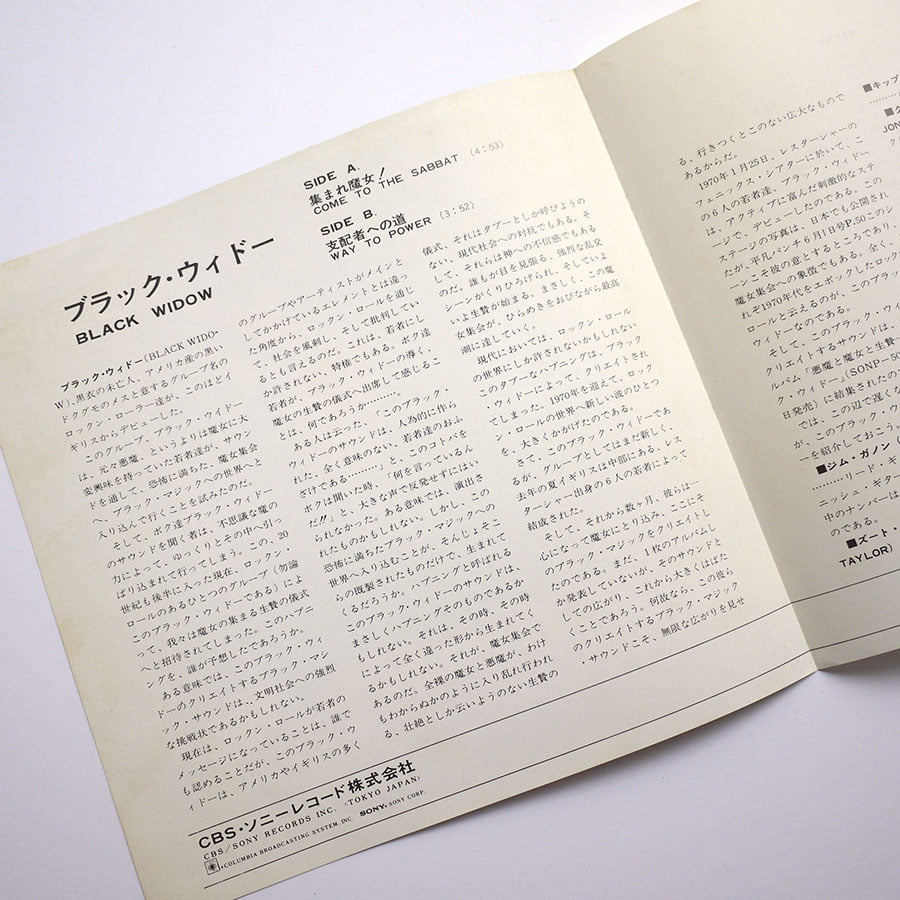 ブラック・ウィドー
BLACK WIDOW
SIDE A.
集まれ魔女!
COME TO THE SABBAT (4:53)
SIDE B.
支配者への道
WAY TO POWER (3:52)
ブラック・ウィドー(BLACK WIDO-
W)、黒衣の未亡人、アメリカ産の黒い
ドクグモのメスと意するグループ名の
ロックン・ローラー達が、このほどイ
ギリスからデビューした。
このグループ、ブラック・ウイドー
は、元々悪魔、というよりは魔女に大
変興味を持っていた若者達が、サウン
ドを通して、恐怖に満ちた、魔女集会
へ、ブラック・マジックの世界へと
入り込んで行くことを試みたのだ。
そして、ボク達ブラック・ウィドー
のサウンドを聞く者は、不思議な魔の
力によって、ゆっくりとその中へ引っ
ぱり込まれて行ってしまう。この、20
世紀も後半に入った現在、ロックン・
ロールのあるひとつのグループ(勿論
このブラック・ウィドーである)によ
って、我々は魔女の集まる生贄の儀式
へと招待されてしまった。このハプニ
ングを、誰が予想したであろうか。
ある意味では、このブラック・ウィ
ドーのクリエイトするブラック・マジ
ック・サウンドは、文明社会への強烈
な挑戦状であるかもしれない。
現在は、ロックン・ロールが若者の
メッセージになっていることは、誰で
も認めることだが、このブラック・ウ
ィドーは、アメリカやイギリスの多く
のグループやアーティストがメインと
してかかげているエレメントとは違っ
た角度から、ロックン・ロールを通じ
て、社会を風刺し、そして批判してい
るとも言えるのだ。これは、若者にし
か許されない、特権でもある。ボク達
若者が、ブラック・ウィドーの導く、
魔女の生贄の儀式へ出席して感じるこ
とは、何であろうか………。
ある人は云った、「このブラック・
ウィドーのサウンドは、人為的に作ら
れた、全く意味のない、若者達のおふ
ざけである………」と、このコトバを
ボクは聞いた時、「何を言っているん
だ!!」と、大きな声で反発せずにはい
られなかった。ある意味では、演出さ
れたものかもしれない。しかし、この
恐怖に満ちたブラック・マジックへの
世界へ入り込むことが、そんじょそこ
らの既製されたものだけで、生まれて
くるだろうか。ハプニングと呼ばれる
このブラック・ウィドーのサウンドは、
まさしくハプニングそのものであるか
もしれない。それは、その時、その時
によって全く違った形から生まれてく
るかもしれない。それが、魔女集会で
あるのだ。全裸の魔女と悪魔が、わけ
もわからぬかのように入り乱れ行われ
る、壮絶としか云いようのない生贄の
儀式、それはタブーとしか呼びようの
ない、現代社会への対抗でもある。そ
して、それらは神への不信感でもある
のだ。誰もが目を見張る、強烈な乱交
シーンがくりひろげられ、そしていよ
いよ生贄が始まる。まさしく、この魔
女集会が、ひらめきをおびながら最高
潮に達していく。
現代においては、ロックン・ロール
の世界にしか許されないかもしれない
このタブーなハプニングは、ブラック
・ウィドーによって、クリエイトされ
てしまった。1970年を迎えて、ロック
ン・ロールの世界へ新しい波のひとつ
を、大きくかげたのである。
さて、このブラック・ウィドーであ
るが、グループとしてはまだ新しく、
去年の夏イギリスは中部にある、レス
ターシャー出身の6人の若者によって
結成された。
そして、それから数ヶ月、彼らは一
心になって魔女にとり込み、ここにそ
のブラック・マジックをクリエイトし
たのである。まだ、1枚のアルバムし
か発表していないが、そのサウンドと
しての広がり、これから大きくはばた
くことであろう。何故なら、この彼ら
のクリエイトするブラック・マジック
・サウンドこそ、無限な広がりを見せ
る、行きつくとこのない広大なもので
あるからだ。
1970年1月25日、レスターシャーの
フェニックス・シアターに於いて、こ
の6人の若者達、ブラック・ウィドー
は、アクティブに富んだ刺激的なステ
ージで、デビューしたのである。この
ステージの写真は、日本でも公開され
たが、平凡パンチ6月1日号P.50このシ
ーンこそ彼の意とするところであり、
魔女集会への象徴でもある。全く、
れぞ1970年代をエポックしたロック
ロールと云えるのが、このブラック
ウィドーなのである。
そして、このブラック・ウィ
クリエイトするサウンドは、
アルバム「悪魔と魔女と生贄
ク・ウィドー」(SONP-50
日発売)に結集されたの
では、この辺で遅くな
が、このブラック・ウ
ーを紹介しておこう。
■ジム・ガノン(
………リード・ギ
ニッシュ・ギタ
中のナンバーは
のである。
■ズート・テ
TAYLOR)
■キップ
■ク
JON
ク
CBS・ソニーレコード株式会社
CBS/SONY RECORDS INC. (TOKYO JAPAN)
COLUMBIA BROADCASTING SYSTEM, INC. SONY. SONY CORP.